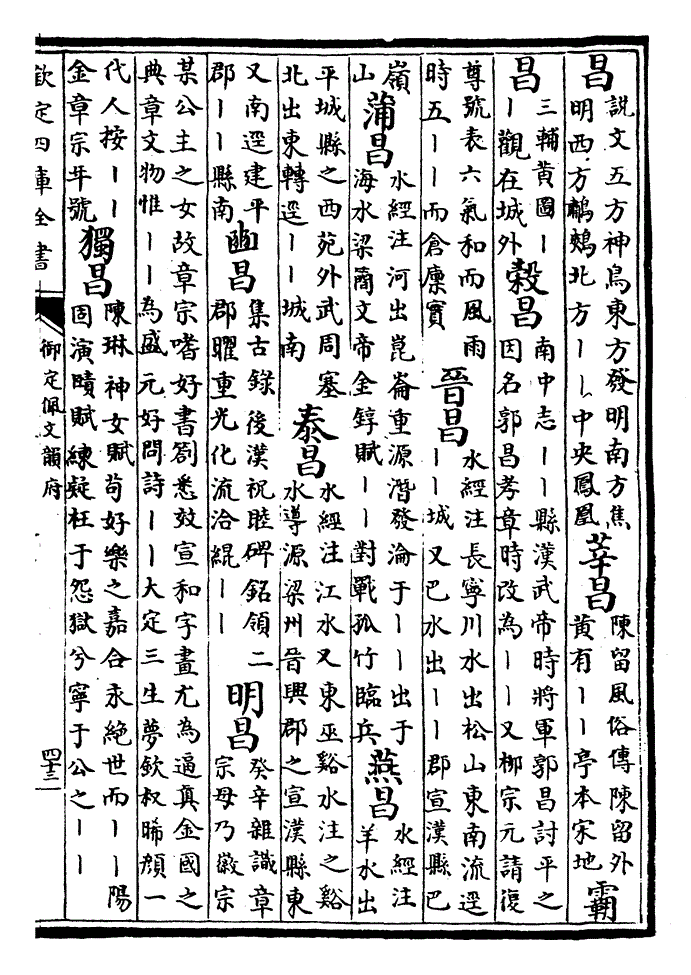 昌
說文五方神鳥東方發明南方焦
明西方鷫鷞北方丨丨中央鳳凰
莘昌
陳留風俗傳陳留外
黃有丨丨亭本宋地
霸
昌
三輔黃圖丨
丨觀在城外
穀昌
南中志丨丨縣漢武帝時將軍郭昌討平之
因名郭昌孝章時改為丨丨又柳宗元請復
尊號表六氣和而風雨
時五丨丨而倉廩實
晉昌
水經注長寧川水出松山東南流逕
丨丨城又巴水出丨丨郡宣漢縣巴
嶺
山
蒲昌
水經注河出崑崙重源潛發淪于丨丨出于
海水梁簡文帝金錞賦丨丨對戰孤竹臨兵
燕昌
水經注
羊水出
平城縣之西苑外武周塞
北出東轉逕丨丨城南
泰昌
水經注江水又東巫谿水注之谿
水導源梁州晉興郡之宣漢縣東
又南逕建平
郡丨丨縣南
幽昌
集古錄後漢祝睦碑銘領二
郡曜重光化流洽緄丨丨
明昌
癸辛雜識章
宗母乃徽宗
某公主之女故章宗嗜好書劄悉效宣和字畫尤為逼真金國之
典章文物惟丨丨為盛元好問詩丨丨大定三生夢欽叔晞顔一
代人按丨丨
金章宗年號
獨昌
陳琳神女賦苟好樂之嘉合永絕世而丨丨陽
固演賾賦練疑枉于怨獄兮寧于公之丨丨
欽定四庫全書
御定佩文韻府
四十三